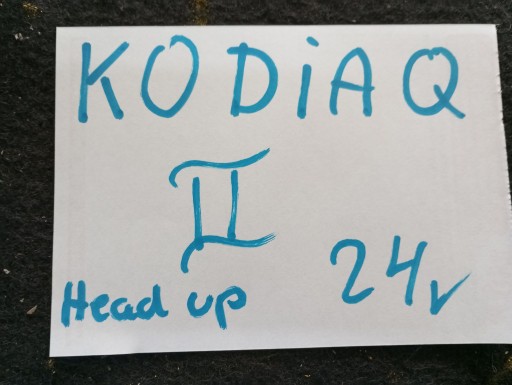 KODiAQ
II
Head up 24v